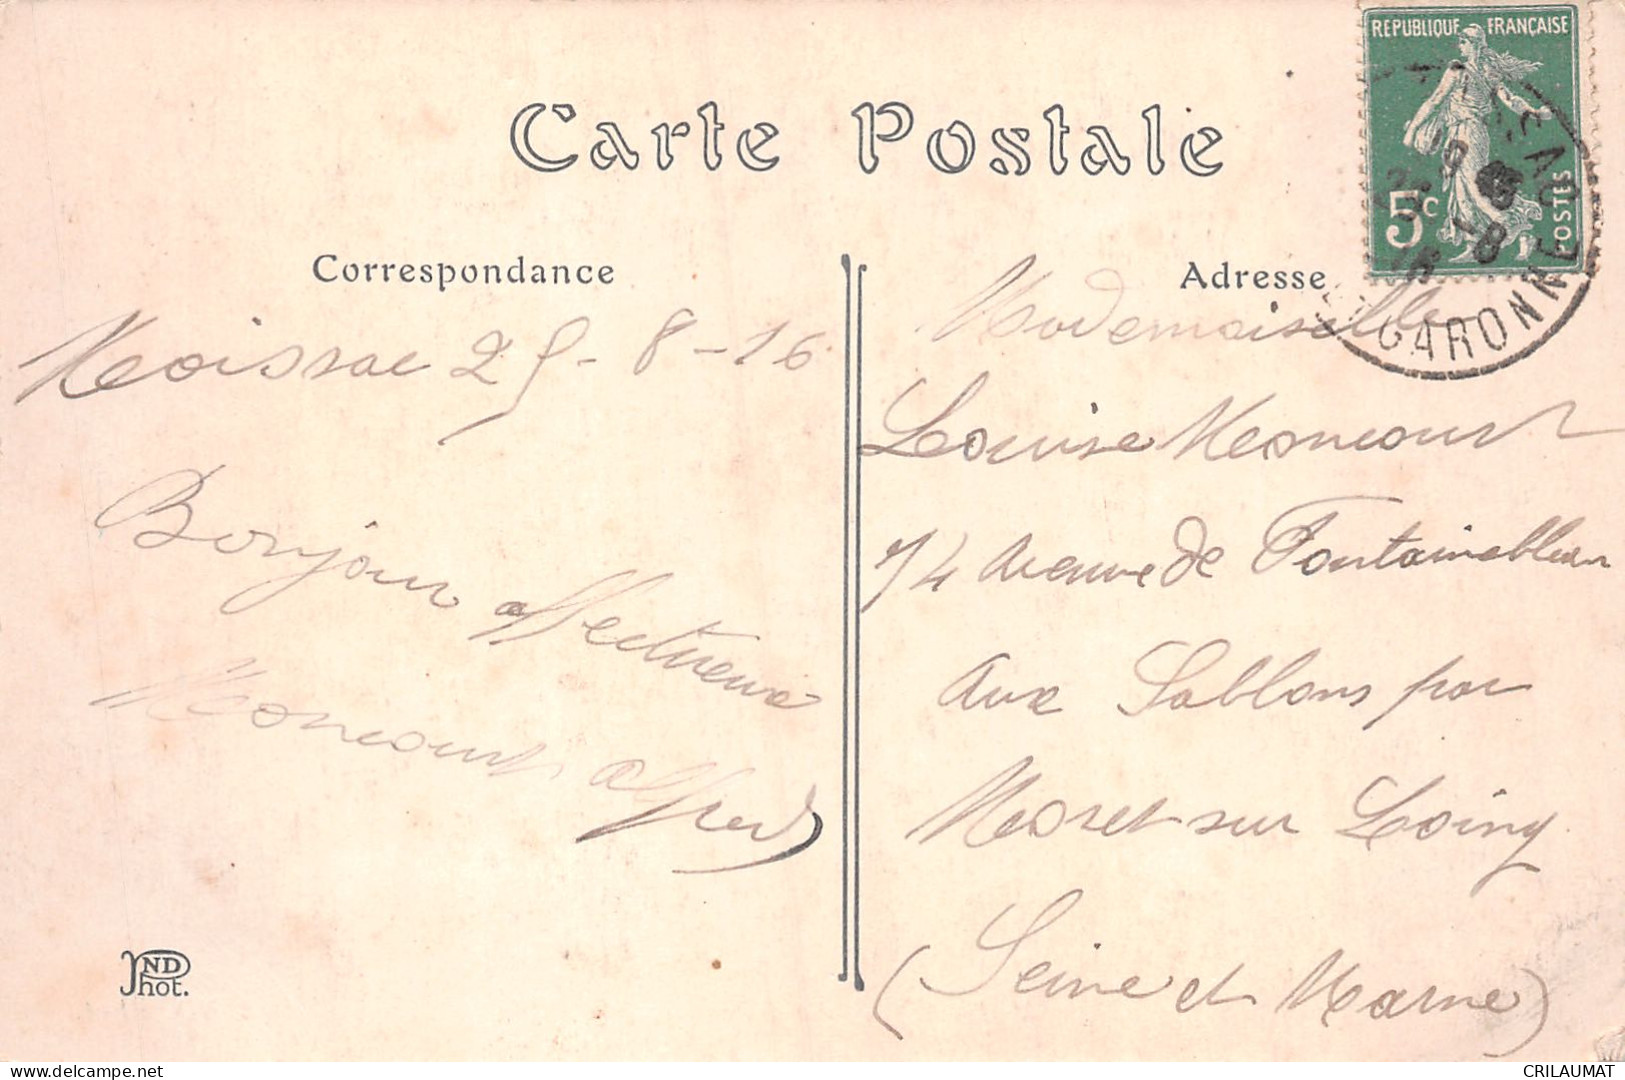 Carte Postale
REPUBLIQUE FRANÇAISE
5c
POSTES
GARONNE
Correspondance
Adresse
Moissac 25-8-16
Bonjour affectueux
Moncourt alfred
Mademoiselle
Louise Moncourt
14 Avenue de Fontainebleau
Aux Sablons par
Moret sur Loing
(Seine et Marne)
ND
Phot.
www.delcampe.net
CRILAUMAT